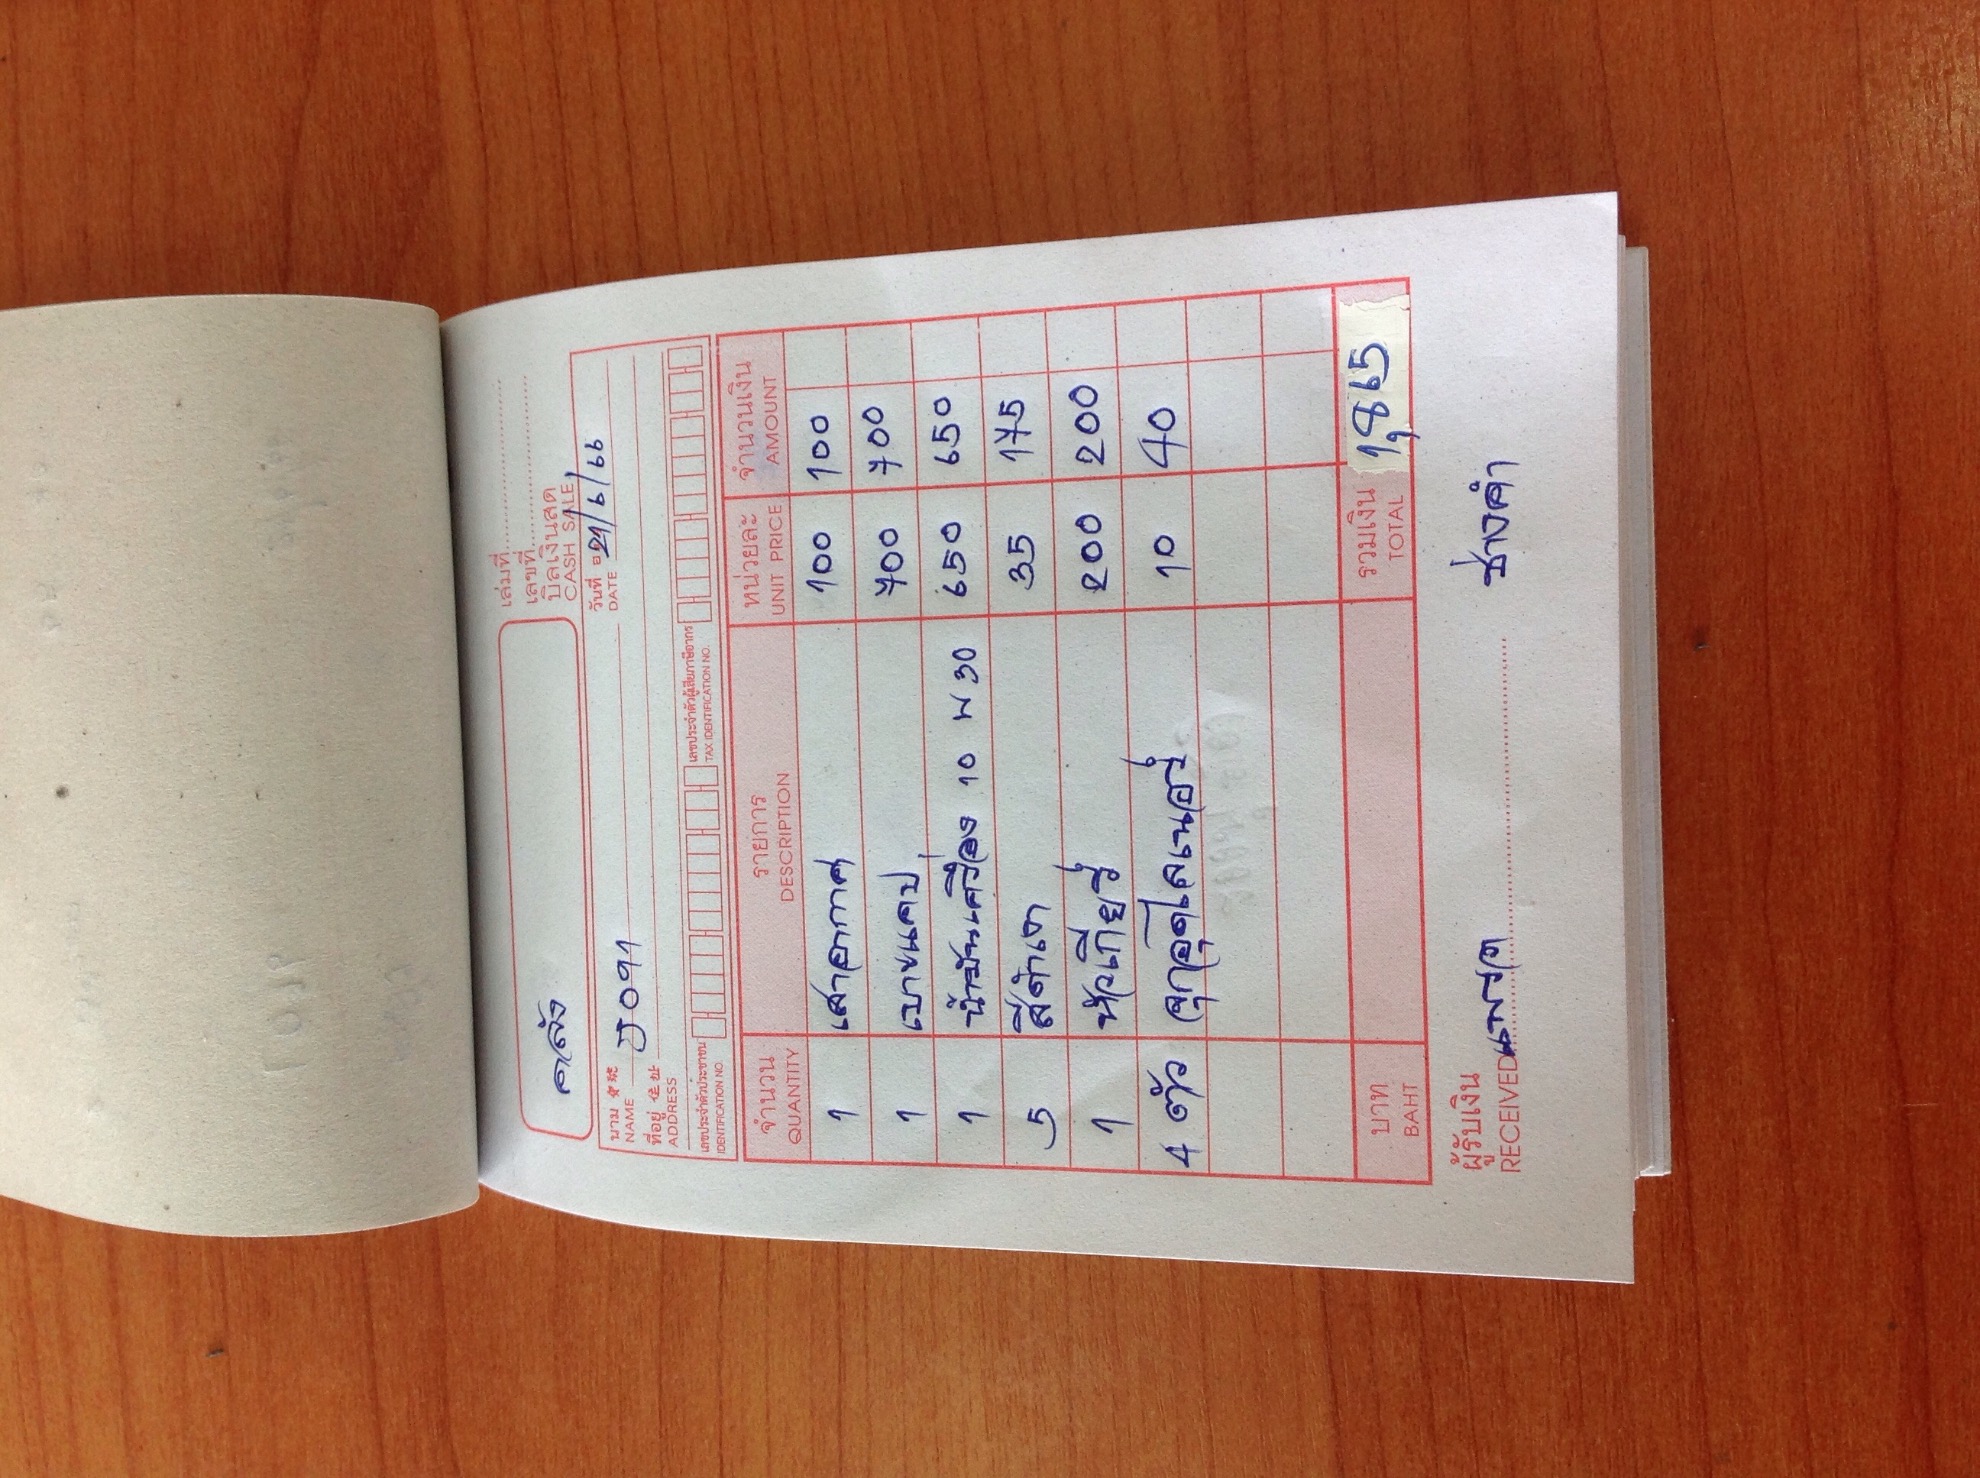 เล่มที่
เลขที่
คลัง
บิลเงินสด
CASH SALE
วันที่ 21/6/66
DATE
นาม
NAME ปี 091
ที่อยู่
ADDRESS
เลขประจำตัวประชาชน เลขประจำตัวผู้เสียภาษีอากร
IDENTIFICATION NO TAX IDENTIFICATION NO.
จำนวน รายการ หน่วยละ จำนวนเงิน
QUANTITY DESCRIPTION UNIT PRICE AMOUNT
1 เสาอากาศ 100 100
1 เบาะแคป 700 700
1 น้ำมันเครื่อง 10 W 30 650 650
5 สีดำเงา 35 175
1 หัวเกียร์ 200 200
4 ตัว ลูกอุดไลเนอร์ 10 40
บาท รวมเงิน 1,865
BAHT TOTAL
ผู้รับเงิน
RECEIVED ช่างคำ